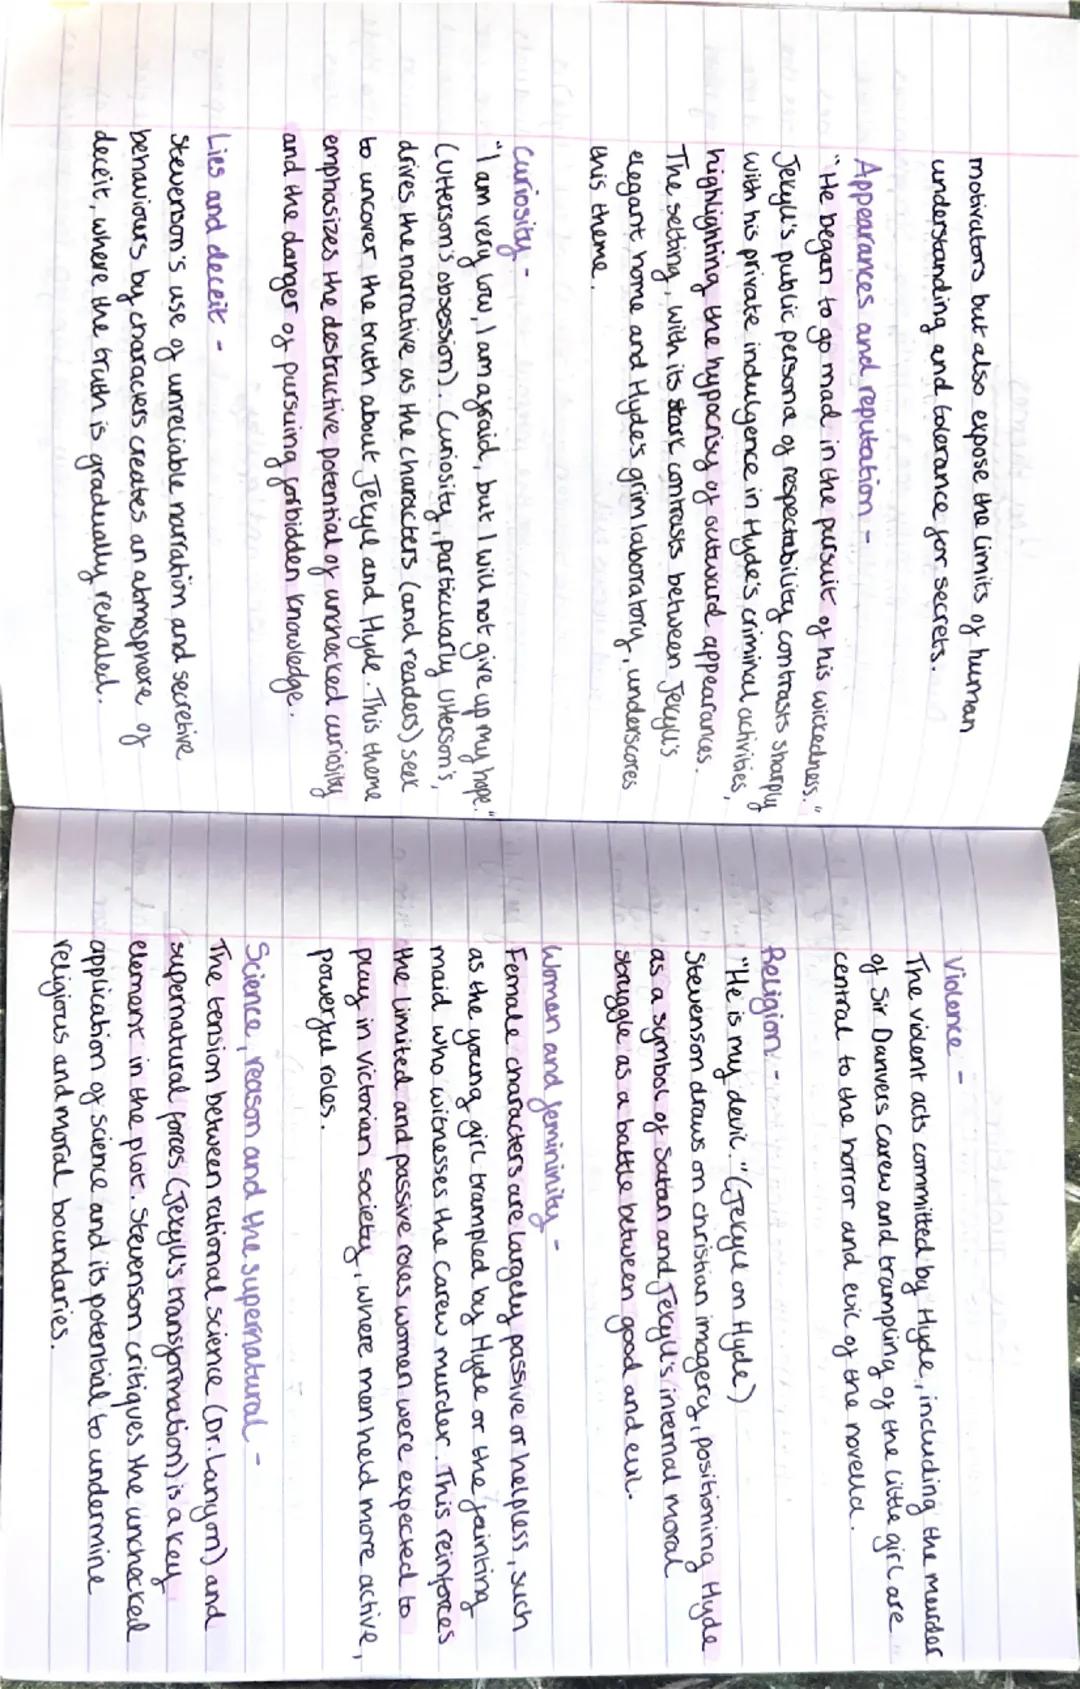 motivators but also expose the limits of human
understanding and tolerance for secrets.
Appearances and reputation -
"He began to go mad in the pursuit of his wickedness."
Jekyll's public persona of respectability contrasts sharply
with his private indulgence in Hyde's criminal activities,
highlighting the hypocrisy of outward appearances.
The setting, with its stark contrasts between Jekyll's
elegant home and Hyde's grim laboratory, underscores
this theme.
Curiosity -
"I am very low, I am afraid, but I will not give up my hope."
(Utterson's obsession). Curiosity, particularly Utterson's,
drives the narrative as the characters (and readers) seek
to uncover the truth about Jekyll and Hyde. This theme
emphasizes the destructive potential of unchecked curiosity
and the danger of pursuing forbidden knowledge.
Lies and deceit -
Stevenson's use of unreliable narration and secretive
behaviours by characters creates an atmosphere of
deceit, where the truth is gradually revealed.
Violence -
The violent acts committed by Hyde, including the murder
of Sir Danvers Carew and trampling of the little girl are
central to the horror and evil of the novella.
Religion -
"He is my devil." (Jekyll on Hyde)
Stevenson draws on christian imagery, positioning Hyde
as a symbol of Satan and Jekyll's internal moral
struggle as a battle between good and evil.
Women and femininity -
Female characters are largely passive or helpless, such
as the young girl trampled by Hyde or the fainting
maid who witnesses the Carew murder. This reinforces
the limited and passive roles women were expected to
play in Victorian society, where men held more active,
powerful roles.
Science, reason and the supernatural -
The tension between rational science (Dr. Lanyon) and
supernatural forces (Jekyll's transformation) is a key
element in the plot. Stevenson critiques the unchecked
application of science and its potential to undermine
religious and moral boundaries.